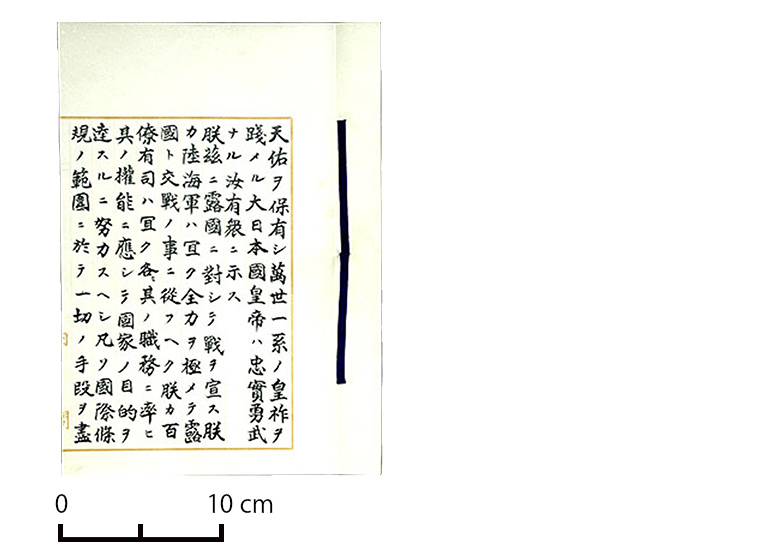 天佑ヲ保有シ萬世一系ノ皇祚ヲ
踐メル大日本國皇帝ハ忠實勇武
ナル汝有衆ニ示ス
朕茲ニ露國ニ對シテ戰ヲ宣ス朕
カ陸海軍ハ宜ク全力ヲ極メテ露
國ト交戰ノ事ニ從フヘク朕カ百
僚有司ハ宜ク各〻其ノ職務ニ率ヒ
其ノ權能ニ應シテ國家ノ目的ヲ
達スルニ努力スヘシ凡ソ國際條
規ノ範圍ニ於テ一切ノ手段ヲ盡
0 10 cm